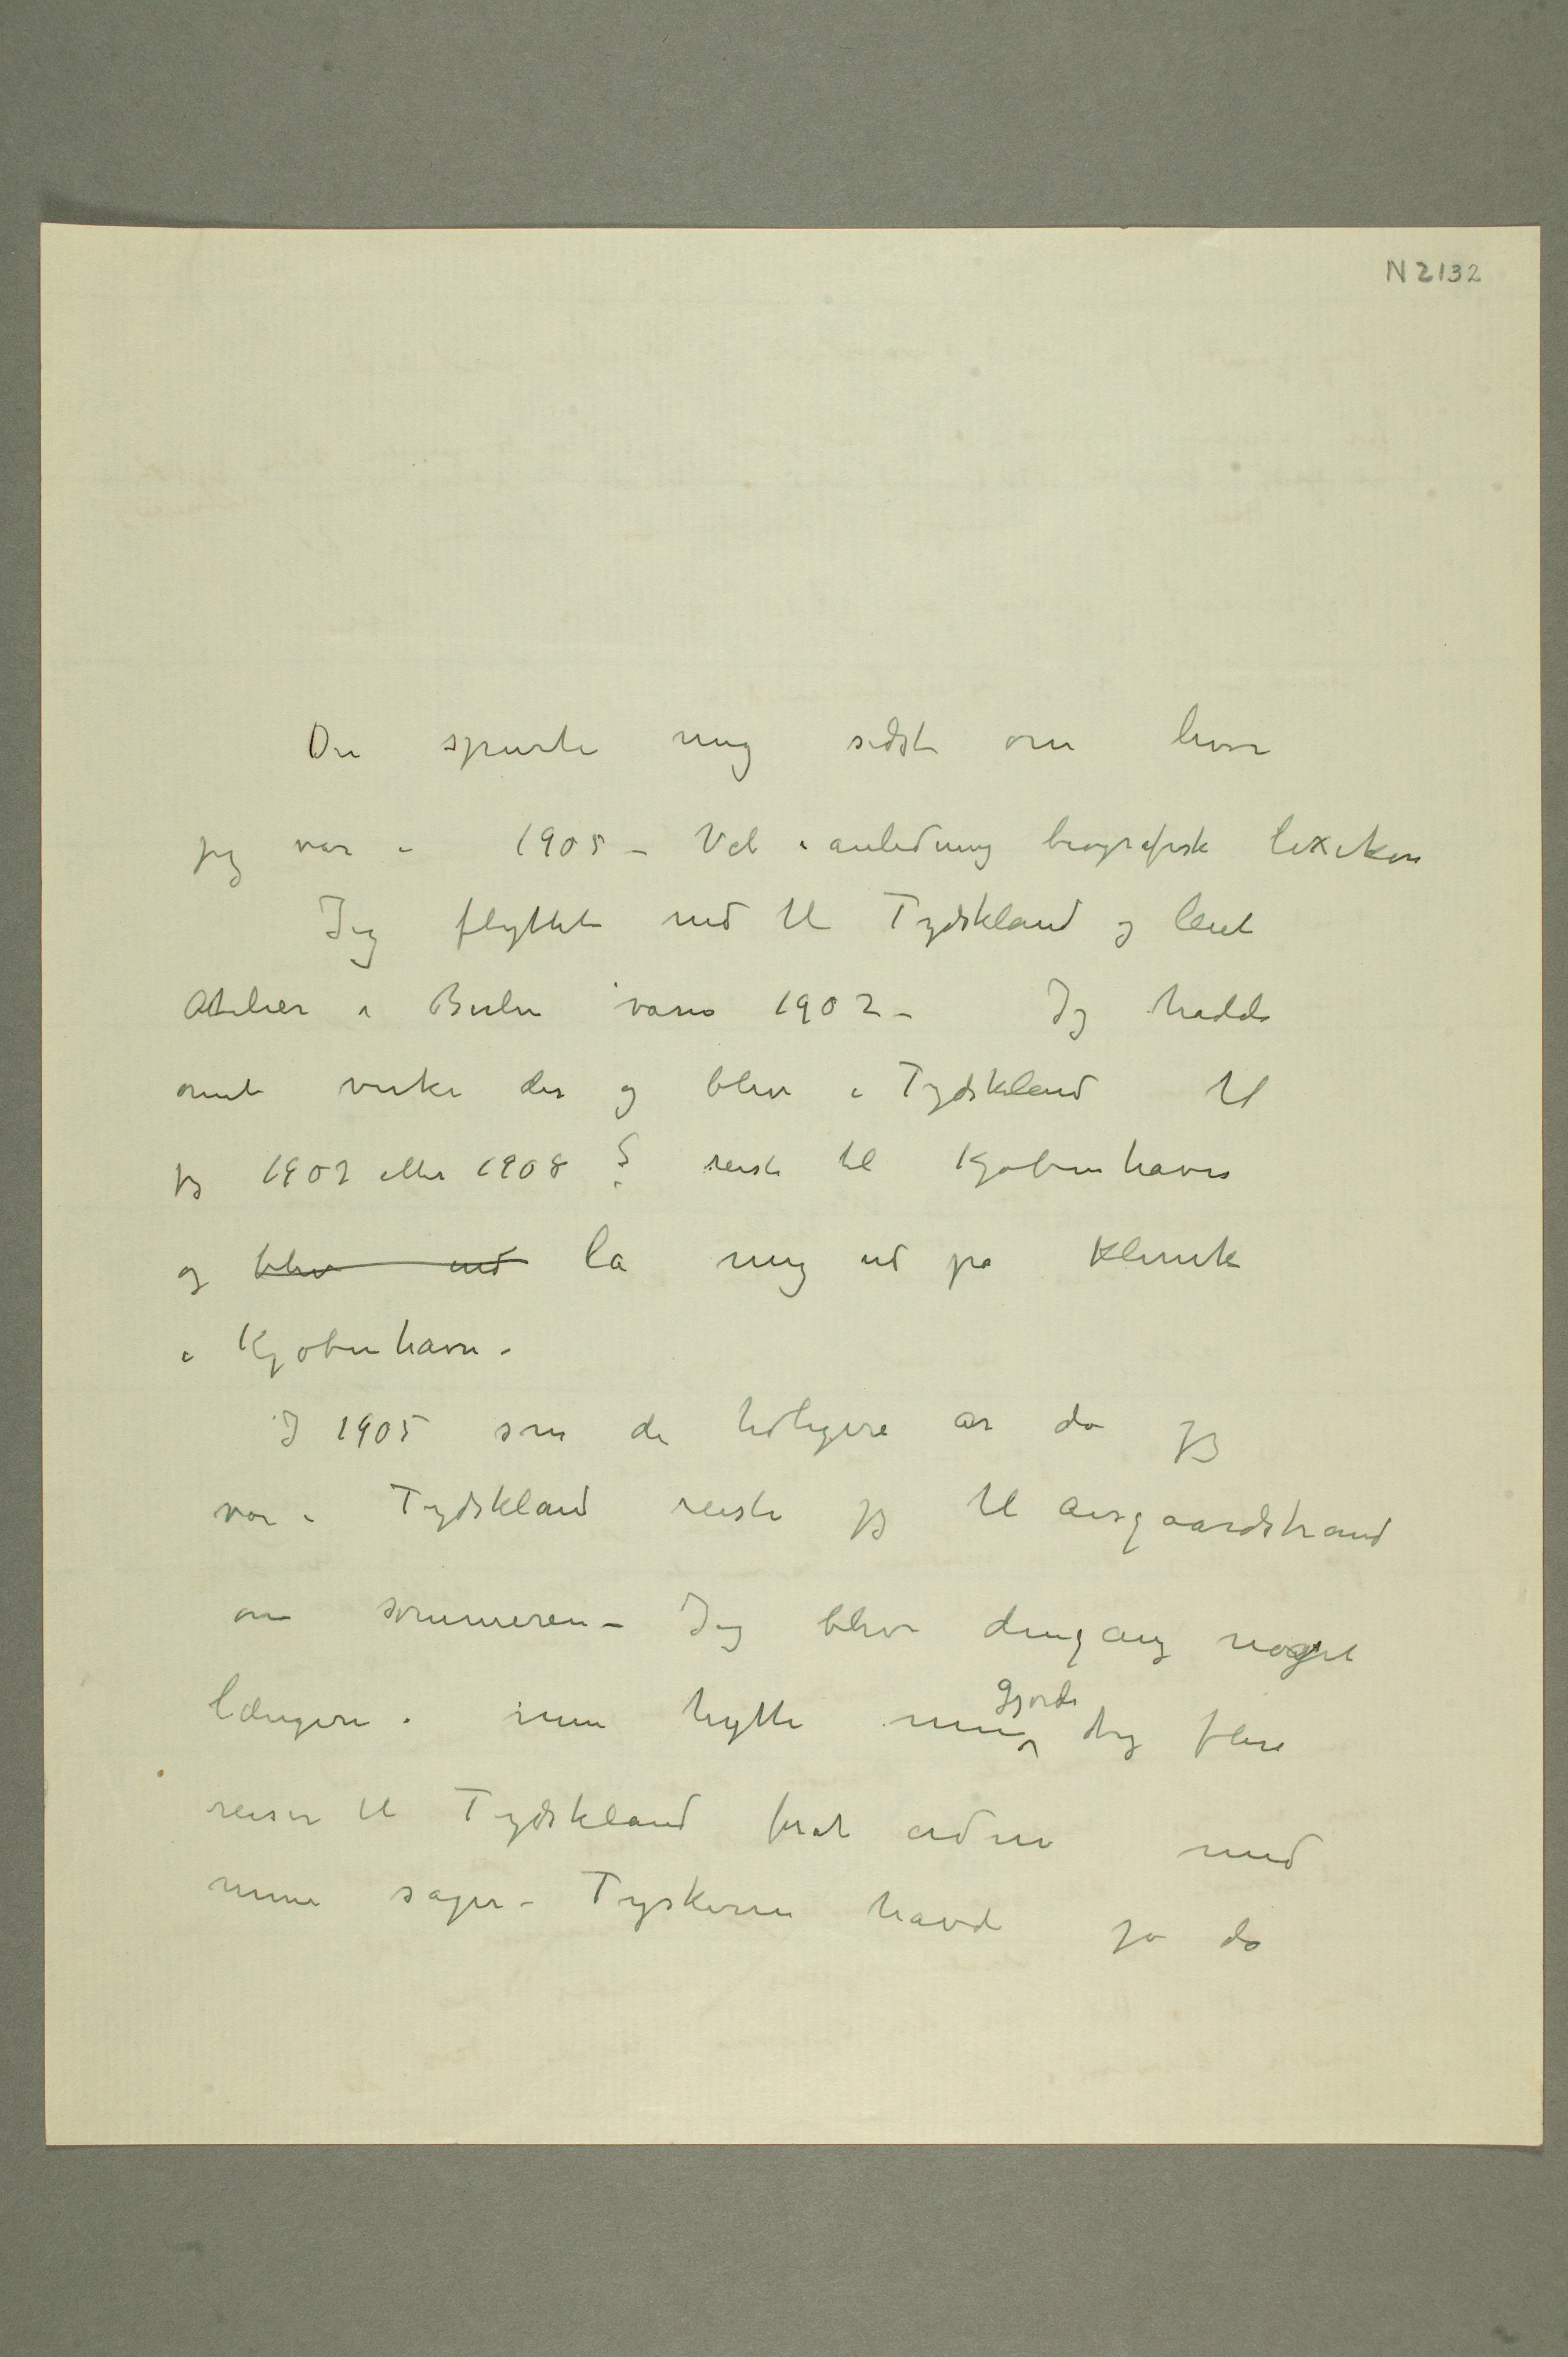 N 2132
Du spurte mig sidst om hvor
jeg var i 1905 – Vel i anledning biografisk lexikon
Jeg flyttet ned til Tydskland og leiet
Atelier i Berlin 1902 – Jeg hadde
mit virke der og blev i Tydskland til
jeg 1907 eller 1908 ? reiste til Kjøbenhavn
og blev ind la mig ind på Klinik
i Kjøbenhavn –
I 1905 som de tidligere år da jeg
var i Tydskland reiste jeg til Aasgaardstrand
om sommeren – Jeg blev dengang noget
længere i min hytte men gjorde dog flere
reiser til Tydskland forat ordne med
mine sager – Tyskerne havde jo da